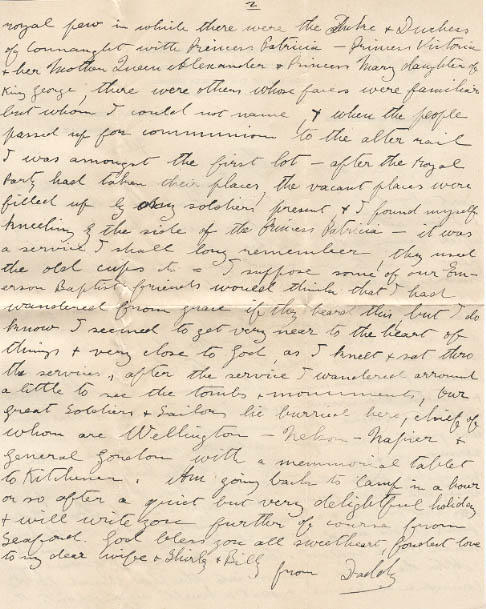 2
royal pew in which there were the Duke & Duchess
of Connaught with Princess Patricia – Princess Victoria
& her Mother Queen Alexander & Princess Mary daughter of
King George, there were others whose faces were familiar
but whom I could not name, & when the people
passed up for communion to the alter rail
I was amongst the first lot – after the royal
party had taken their places, the vacant places were
filled up by any soldiers present, & I found myself
kneeling by the side of the Princess Patricia – it was
a service I shall long remember, they used
the old cups – I suppose some of our Em-
erson Baptist friends would think that I had
wandered from grace if they heard this, but I do
know I seemed to get very near to the heart of
things & very close to God, as I knelt & sat thro
the service, after the service I wandered arround
a little to see the tombs & monuments, Our
great Soldiers & Sailors lie burried here, chief of
whom are Wellington – Nelson – Napier &
General Gordon with a memmorial tablet
to Kitchener. Am going back to Camp in a hour
or so after a quiet but very delightful holiday
& will write you further of course from
Seaford. God bless you all sweetheart, fondest love
to my dear wife & Shirly & Billy
from Daddy